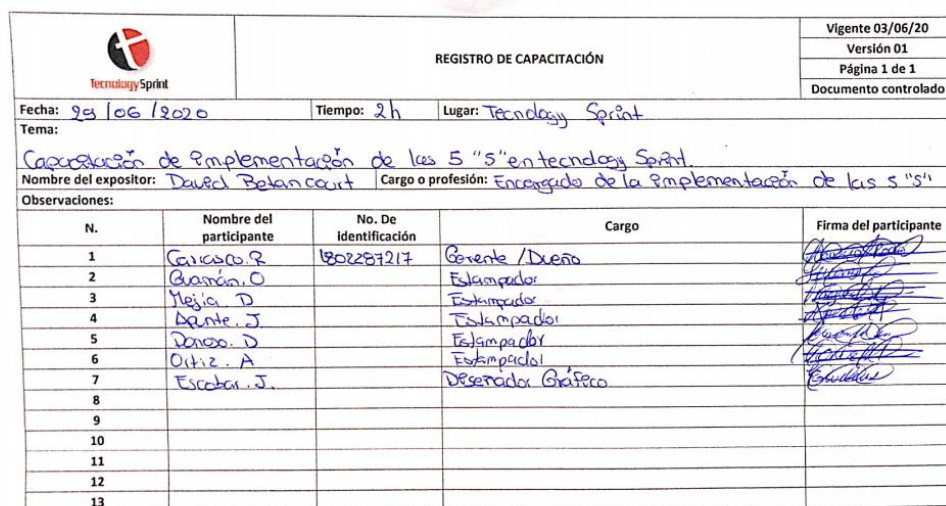 Tecnology Sprint
REGISTRO DE CAPACITACIÓN
Vigente 03/06/20
Versión 01
Página 1 de 1
Documento controlado
Fecha: 29/06/2020 Tiempo: 2h Lugar: Tecnology Sprint
Tema:
Capacitación de implementación de las 5 "S" en tecnology Sprint.
Nombre del expositor: David Betancourt Cargo o profesión: Encargado de la implementación de las 5 "S"
Observaciones:
N. Nombre del participante No. De identificación Cargo Firma del participante
1 Carrasco. R 1802287217 Gerente / Dueño
2 Guamán. O Estampador
3 Mejía D Estampador
4 Apunte. J Estampador
5 Donoso. D Estampador
6 Ortiz. A Estampador
7 Escobar. J. Diseñador Gráfico
8
9
10
11
12
13